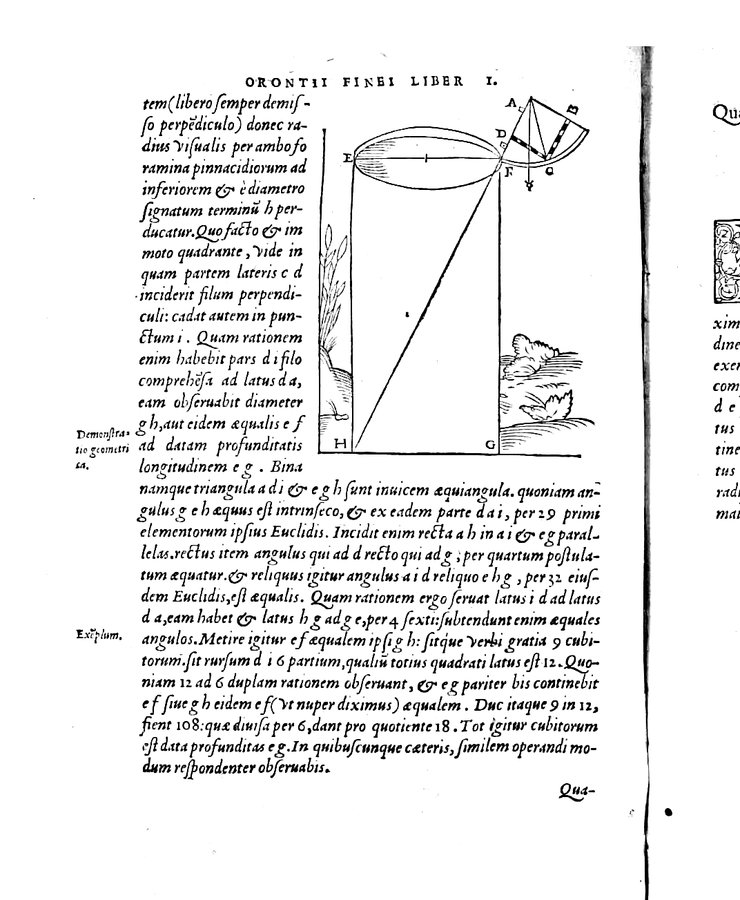 ORONTII FINEI LIBER I.
tem (libero semper demis-
so perpēdiculo) donec ra-
dius visualis per ambo fo
ramina pinnacidiorum ad
inferiorem & è diametro
signatum terminū h per-
ducatur. Quo facto & im
moto quadrante, vide in
quam partem lateris c d
inciderit filum perpendi-
culi: cadat autem in pun-
ctum i. Quam rationem
enim habebit pars d i filo
comprehēsa ad latus d a,
eam obseruabit diameter
g h, aut eidem æqualis e f
ad datam profunditatis
longitudinem e g. Bina
Demonstra-
tio geometri
ca.
namque triangula a d i & e g h sunt inuicem æquiangula. quoniam an-
gulus g e h æquus est intrinseco, & ex eadem parte d a i, per 29 primi
elementorum ipsius Euclidis. Incidit enim recta a h in a i & e g paral-
lelas. rectus item angulus qui ad d recto qui ad g, per quartum postula-
tum æquatur. & reliquus igitur angulus a i d reliquo e h g, per 32 eius-
dem Euclidis, est æqualis. Quam rationem ergo seruat latus i d ad latus
d a, eam habet & latus h g ad g e, per 4 sexti: subtendunt enim æquales
Exēplum.
angulos. Metire igitur e f æqualem ipsi g h: sitque verbi gratia 9 cubi-
torum. sit rursum d i 6 partium, qualiū totius quadrati latus est 12. Quo-
niam 12 ad 6 duplam rationem obseruant, & e g pariter bis continebit
e f siue g h eidem e f (vt nuper diximus) æqualem. Duc itaque 9 in 12,
fient 108: quæ diuisa per 6, dant pro quotiente 18. Tot igitur cubitorum
est data profunditas e g. In quibuscunque cæteris, similem operandi mo-
dum respondenter obseruabis.
Qua-
A
B
D
E
F
C
I
H
G
Qua
xim
dine
exer
com
d e
tus
tine
tus
radi
mat